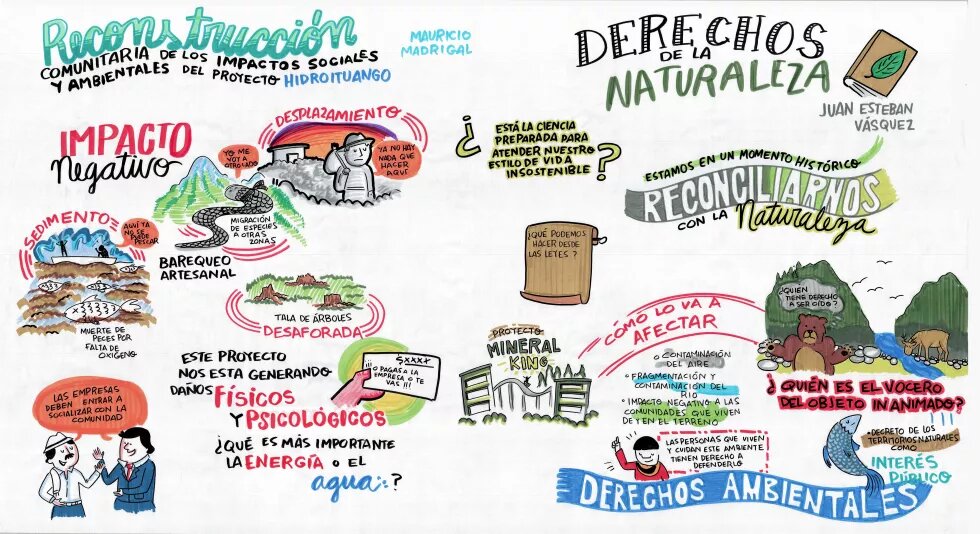 Reconstrucción
COMUNITARIA DE LOS IMPACTOS SOCIALES
Y AMBIENTALES DEL PROYECTO HIDROITUANGO
MAURICIO
MADRIGAL
IMPACTO
Negativo
DESPLAZAMIENTO
YA NO HAY
NADA QUE
HACER
AQUÍ
YO ME
VOY A
OTRO LADO
MIGRACIÓN
DE ESPECIES
A OTRAS
ZONAS
SEDIMENTO
AQUÍ YA
NO SE
PUEDE
PESCAR
MUERTE DE
PECES POR
FALTA DE
OXIGENO
BAREQUEO
ARTESANAL
TALA DE ÁRBOLES
DESAFORADA
ESTE PROYECTO
NOS ESTA GENERANDO
DAÑOS FÍSICOS
Y PSICOLÓGICOS
$XXXX
O PAGAS A LA
EMPRESA O TE
VAS !!!
¿QUÉ ES MÁS IMPORTANTE
LA ENERGÍA O EL
agua?
LAS EMPRESAS
DEBEN ENTRAR A
SOCIALIZAR CON LA
COMUNIDAD
DERECHOS
DE LA
NATURALEZA
JUAN ESTEBAN
VÁSQUEZ
¿ESTÁ LA CIENCIA
PREPARADA PARA
ATENDER NUESTRO
ESTILO DE VIDA
INSOSTENIBLE?
ESTAMOS EN UN MOMENTO HISTÓRICO
RECONCILIARNOS
CON LA Naturaleza
¿QUÉ PODEMOS
HACER DESDE
LAS LEYES?
PROYECTO
MINERAL
KING
CÓMO LO VA A
AFECTAR
CONTAMINACIÓN
DEL AIRE
FRAGMENTACIÓN Y
CONTAMINACIÓN DEL
RIO
IMPACTO NEGATIVO A LAS
COMUNIDADES QUE VIVEN
DE Y EN EL TERRENO
¿QUIÉN
TIENE DERECHO
A SER OÍDO?
¿QUIÉN ES EL VOCERO
DEL OBJETO INANIMADO?
DECRETO DE LOS
TERRITORIOS NATURALES
COMO
INTERÉS
PÚBLICO
LAS PERSONAS QUE VIVEN
Y CUIDAN ESTE AMBIENTE
TIENEN DERECHO A
DEFENDERLO
DERECHOS AMBIENTALES